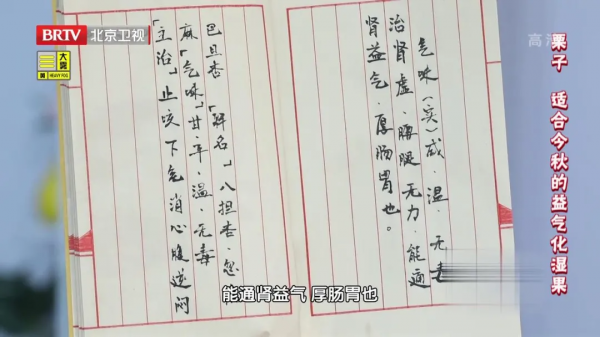 BRTV 北京卫视
大雾
HEAVY FOG
高清
栗子 适合今秋的益气化湿果
气味(实)咸、温、无毒
治肾虚、腰腿无力、能通
肾益气、厚肠胃也。
巴旦杏「释名」八担杏、忽
麻「气味」甘、平、温、无毒
「主治」止咳下气消心腹逆闷
能通肾益气 厚肠胃也